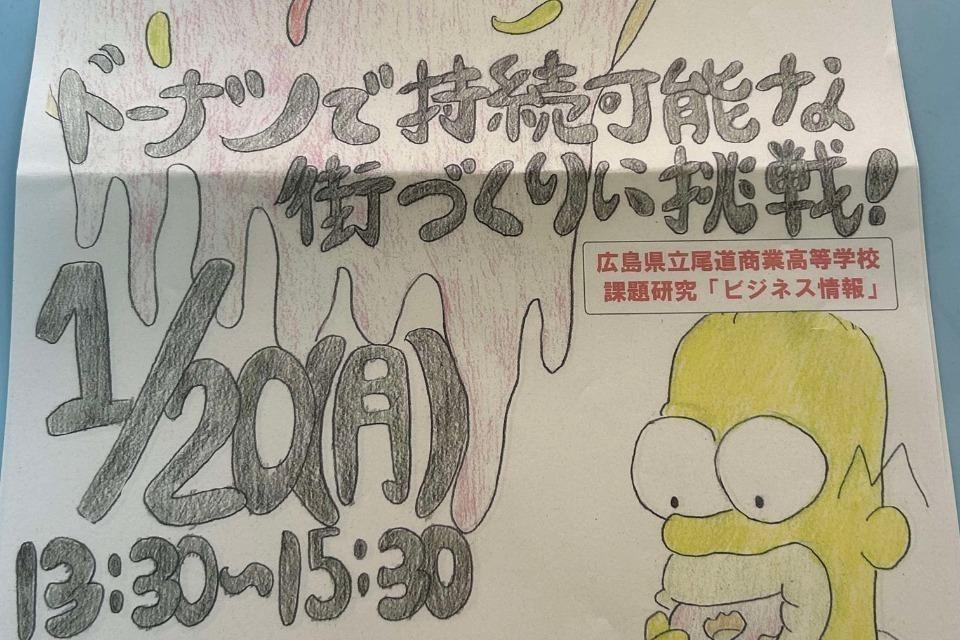 ドーナツで持続可能な
街づくりに挑戦!
広島県立尾道商業高等学校
課題研究「ビジネス情報」
1/20(月)
13:30~15:30